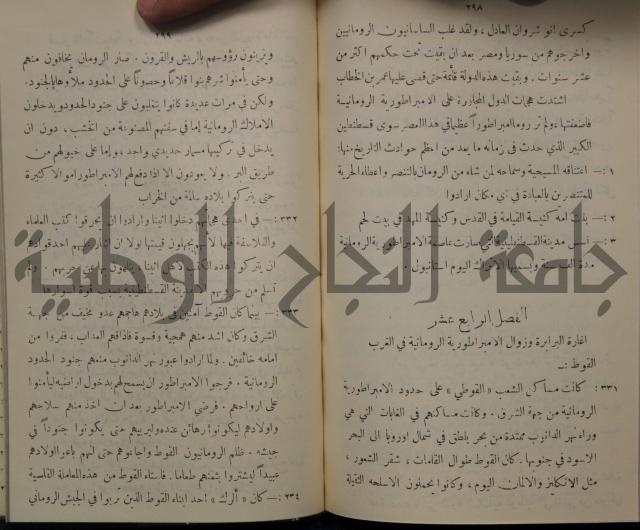 ٢٩٨
كسرى انو شروان العادل ، ولقد غلب الساسانيون الرومانيين
واخرجوهم من سوريا ومصر بعد ان بقيت تحت حكمهم اكثر من
عشر سنوات . وبقيت هذه الدولة قائمة حتى قضى عليها عمر بن الخطاب
اشتدت هجمات الدول المجاورة على الامبراطورية الرومانية
فاضعفتها ، ولم تر روما امبراطوراً عظيماً في هذا العصر سوى قسطنطين
الكبير الذي حدث في زمانه ما يعد من اعظم حوادث التاريخ منها :
١ :— اعتناقه المسيحية وسماحه لمن شاء من الرومان بالتنصر واعطاء الحرية
للمتنصرين بالعبادة في اي مكان ارادوا
٢ :— امه كنيسة القيامة في القدس وكنيسة المهد في بيت لحم
٣ :— اسس مدينة القسطنطينية التي صارت عاصمة الامبراطورية الرومانية
مدة ويسميها الاتراك اليوم استانبول .
الفصل الرابع عشر
اغارة البرابرة وزوال الامبراطورية الرومانية في الغرب
القوط :—
٣٣١ : كانت مساكن الشعب « القوطي » على حدود الامبراطورية
الرومانية من جهة الشرق . وكانت مساكنهم في الغابات التي هي
وراء نهر الدانوب ممتدة من بحر بلطق في شمال اوروبا الى البحر
الاسود في جنوبها . كان القوط طوال القامات ، شقر الشعور ،
مثل الانكليز والالمان اليوم ، وكانوا يحملون الاسلحة الثقيلة
٢٩٩
ويزينون رؤوسهم بالريش والقرون . صار الرومان يخافون منهم
وحتى يأمنوا شرهم بنوا قلاعاً وحصوناً على الحدود ملأوها بالجنود .
ولكن في مرات عديدة كانوا يتغلبون على جنود الحدود ويدخلون
الاملاك الرومانية إما في سفنهم المصنوعة من الخشب ، دون ان
يدخل في تركيبها مسمار حديدي واحد ، وإما على خيولهم من
طريق البر . ولا يعودون الا اذا دفع لهم الامبراطور اموالا كثيرة
حتى يتركوا بلاده سالمة من الخراب
٣٣٢ :— في احدى هجماتهم دخلوا اثينا وارادوا ان يحرقوا كتب العلماء
والفلاسفة فيها لانهم يجهلون قيمتها ولا ان اشار عليهم احد قوادهم
ان يتركوا هذه الكتب لاهل اثينا . ولم
القسطنطينية بسبب قوة اسوارها
٣٣٣ :— بينما كان القوط آمنين في بلادهم هاجمهم عدو مخيف من جهة
الشرق وكان اشد منهم همجية وقسوة فاذاقهم العذاب ، ففروا من
امامه خائفين . ولما ارادوا عبور نهر الدانوب منعهم جنود الحدود
الرومانية . فرجوا الامبراطور ان يسمح لهم بدخول اراضيه ليأمنوا
على ارواحهم . فرضي الامبراطور بعد ان اخذ منهم سلاحهم
واولادهم ليكونوا رهائن عنده وليربيهم حتى يكونوا جنوداً في
جيشه . ظلم الرومانيون القوط واجاعوهم حتى انهم باعوا اولادهم
عبيداً ليشتروا بثمنهم طعاما . فاستاء القوط من هذه المعاملة القاسية
٢٣٤ :— كان « ألرك » احد ابناء القوط الذين تربوا في الجيش الروماني
جامعة النجاح الوطنية